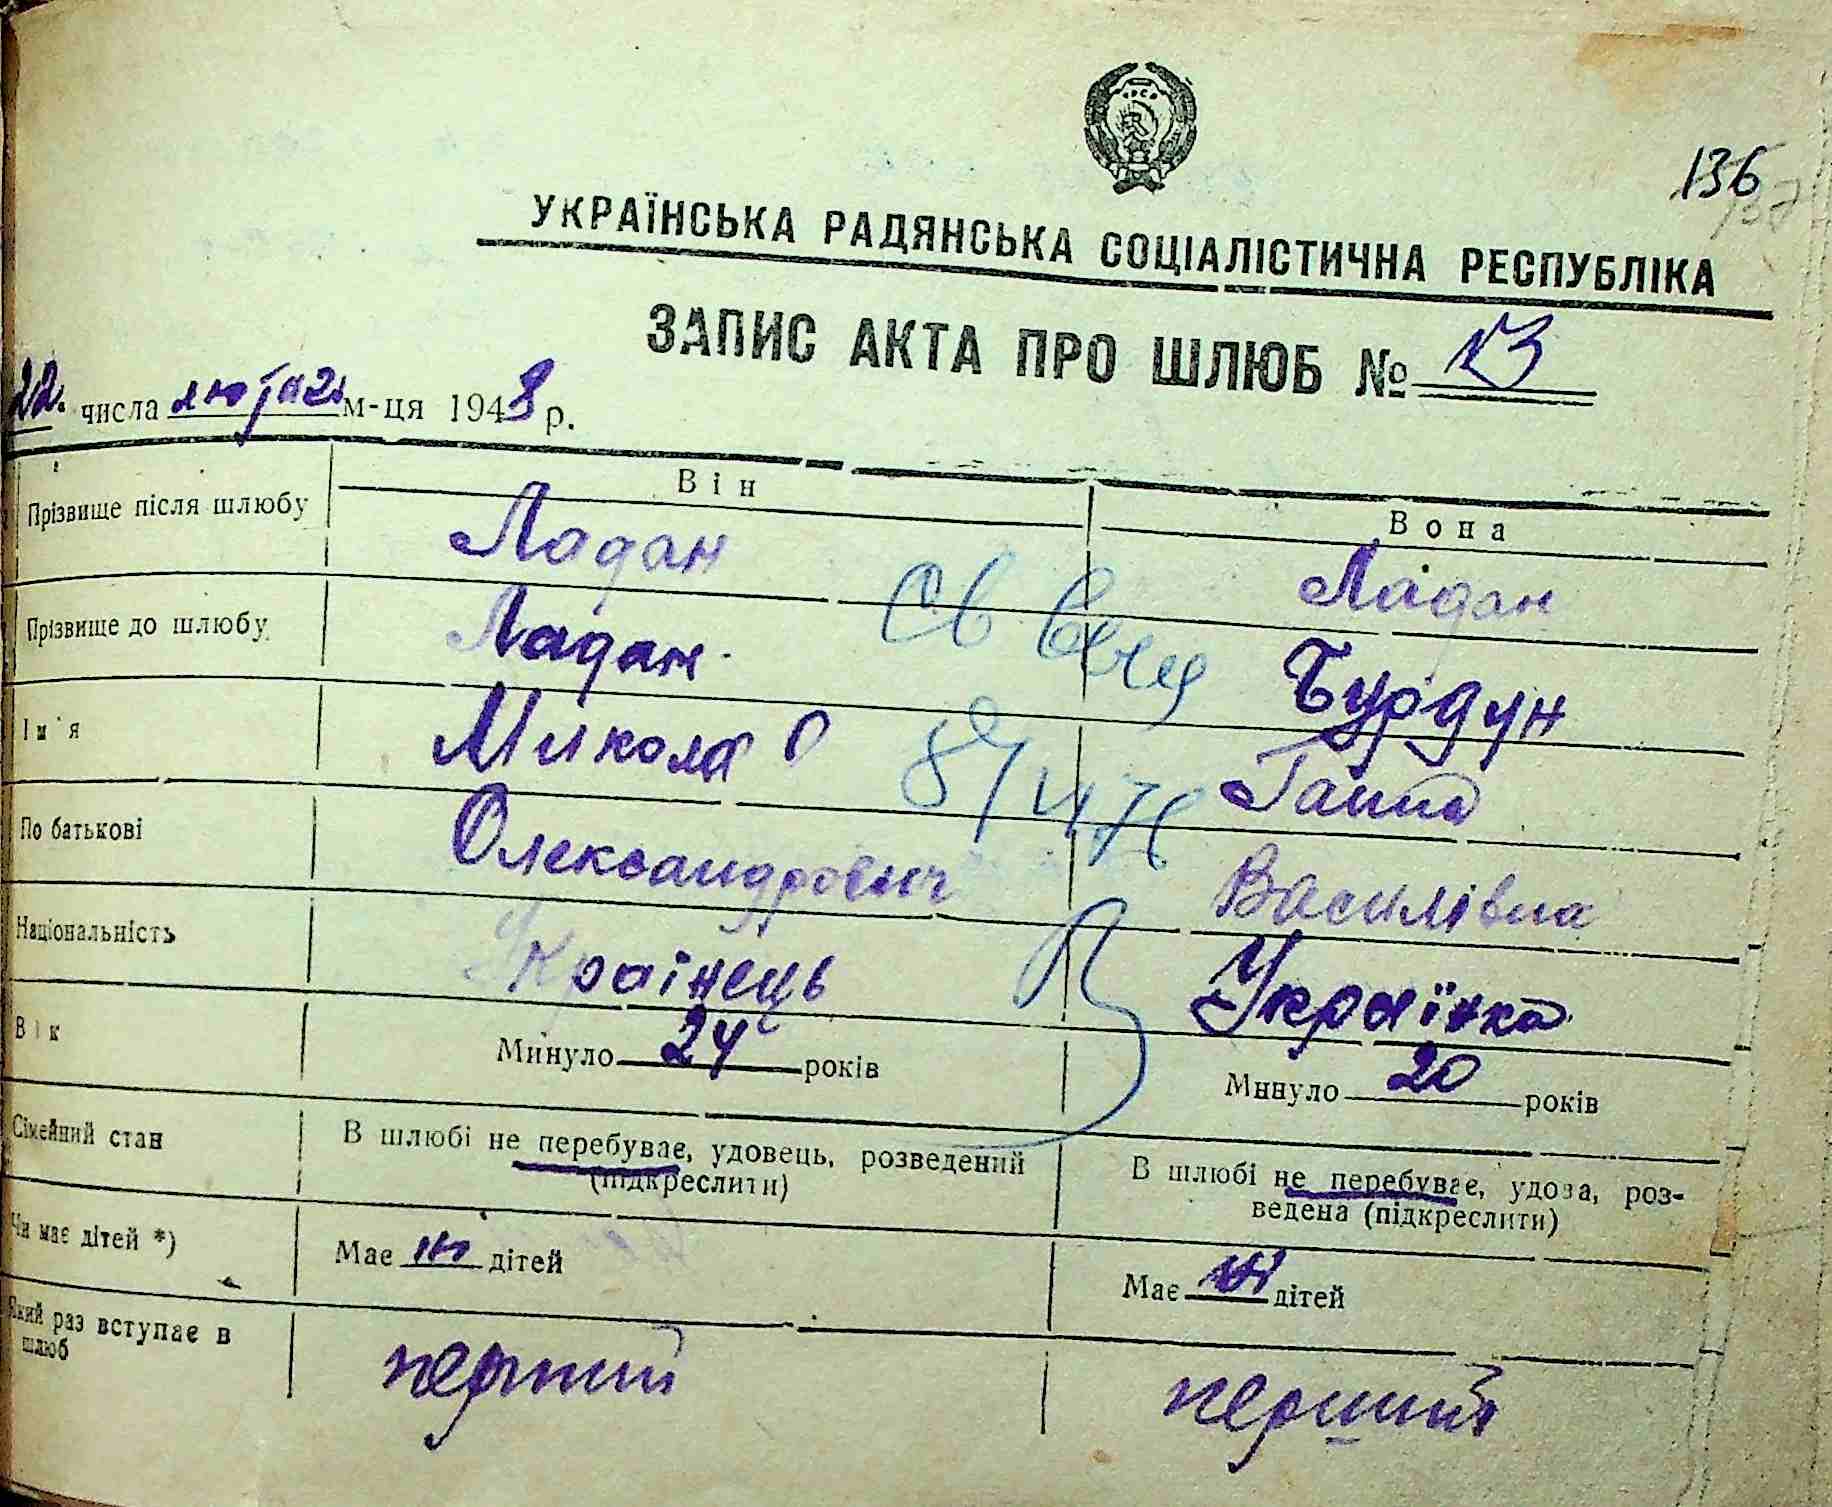 136
УКРАЇНСЬКА РАДЯНСЬКА СОЦІАЛІСТИЧНА РЕСПУБЛІКА
ЗАПИС АКТА ПРО ШЛЮБ № 13
22. числа лютого м-ця 1948 р.
Він Вона
Прізвище після шлюбу Ладан Ладан
Прізвище до шлюбу Ладан Бурдун
Ім'я Микола Ганна
По батькові Олександрович Василівна
Національність Українець Українка
Вік Минуло 24 років Минуло 20 років
Сімейний стан В шлюбі не перебуває, удовець, розведений (підкреслити) В шлюбі не перебуває, удова, роз-
ведена (підкреслити)
Чи має дітей *) Має дітей Має дітей
Який раз вступає в шлюб перший перший